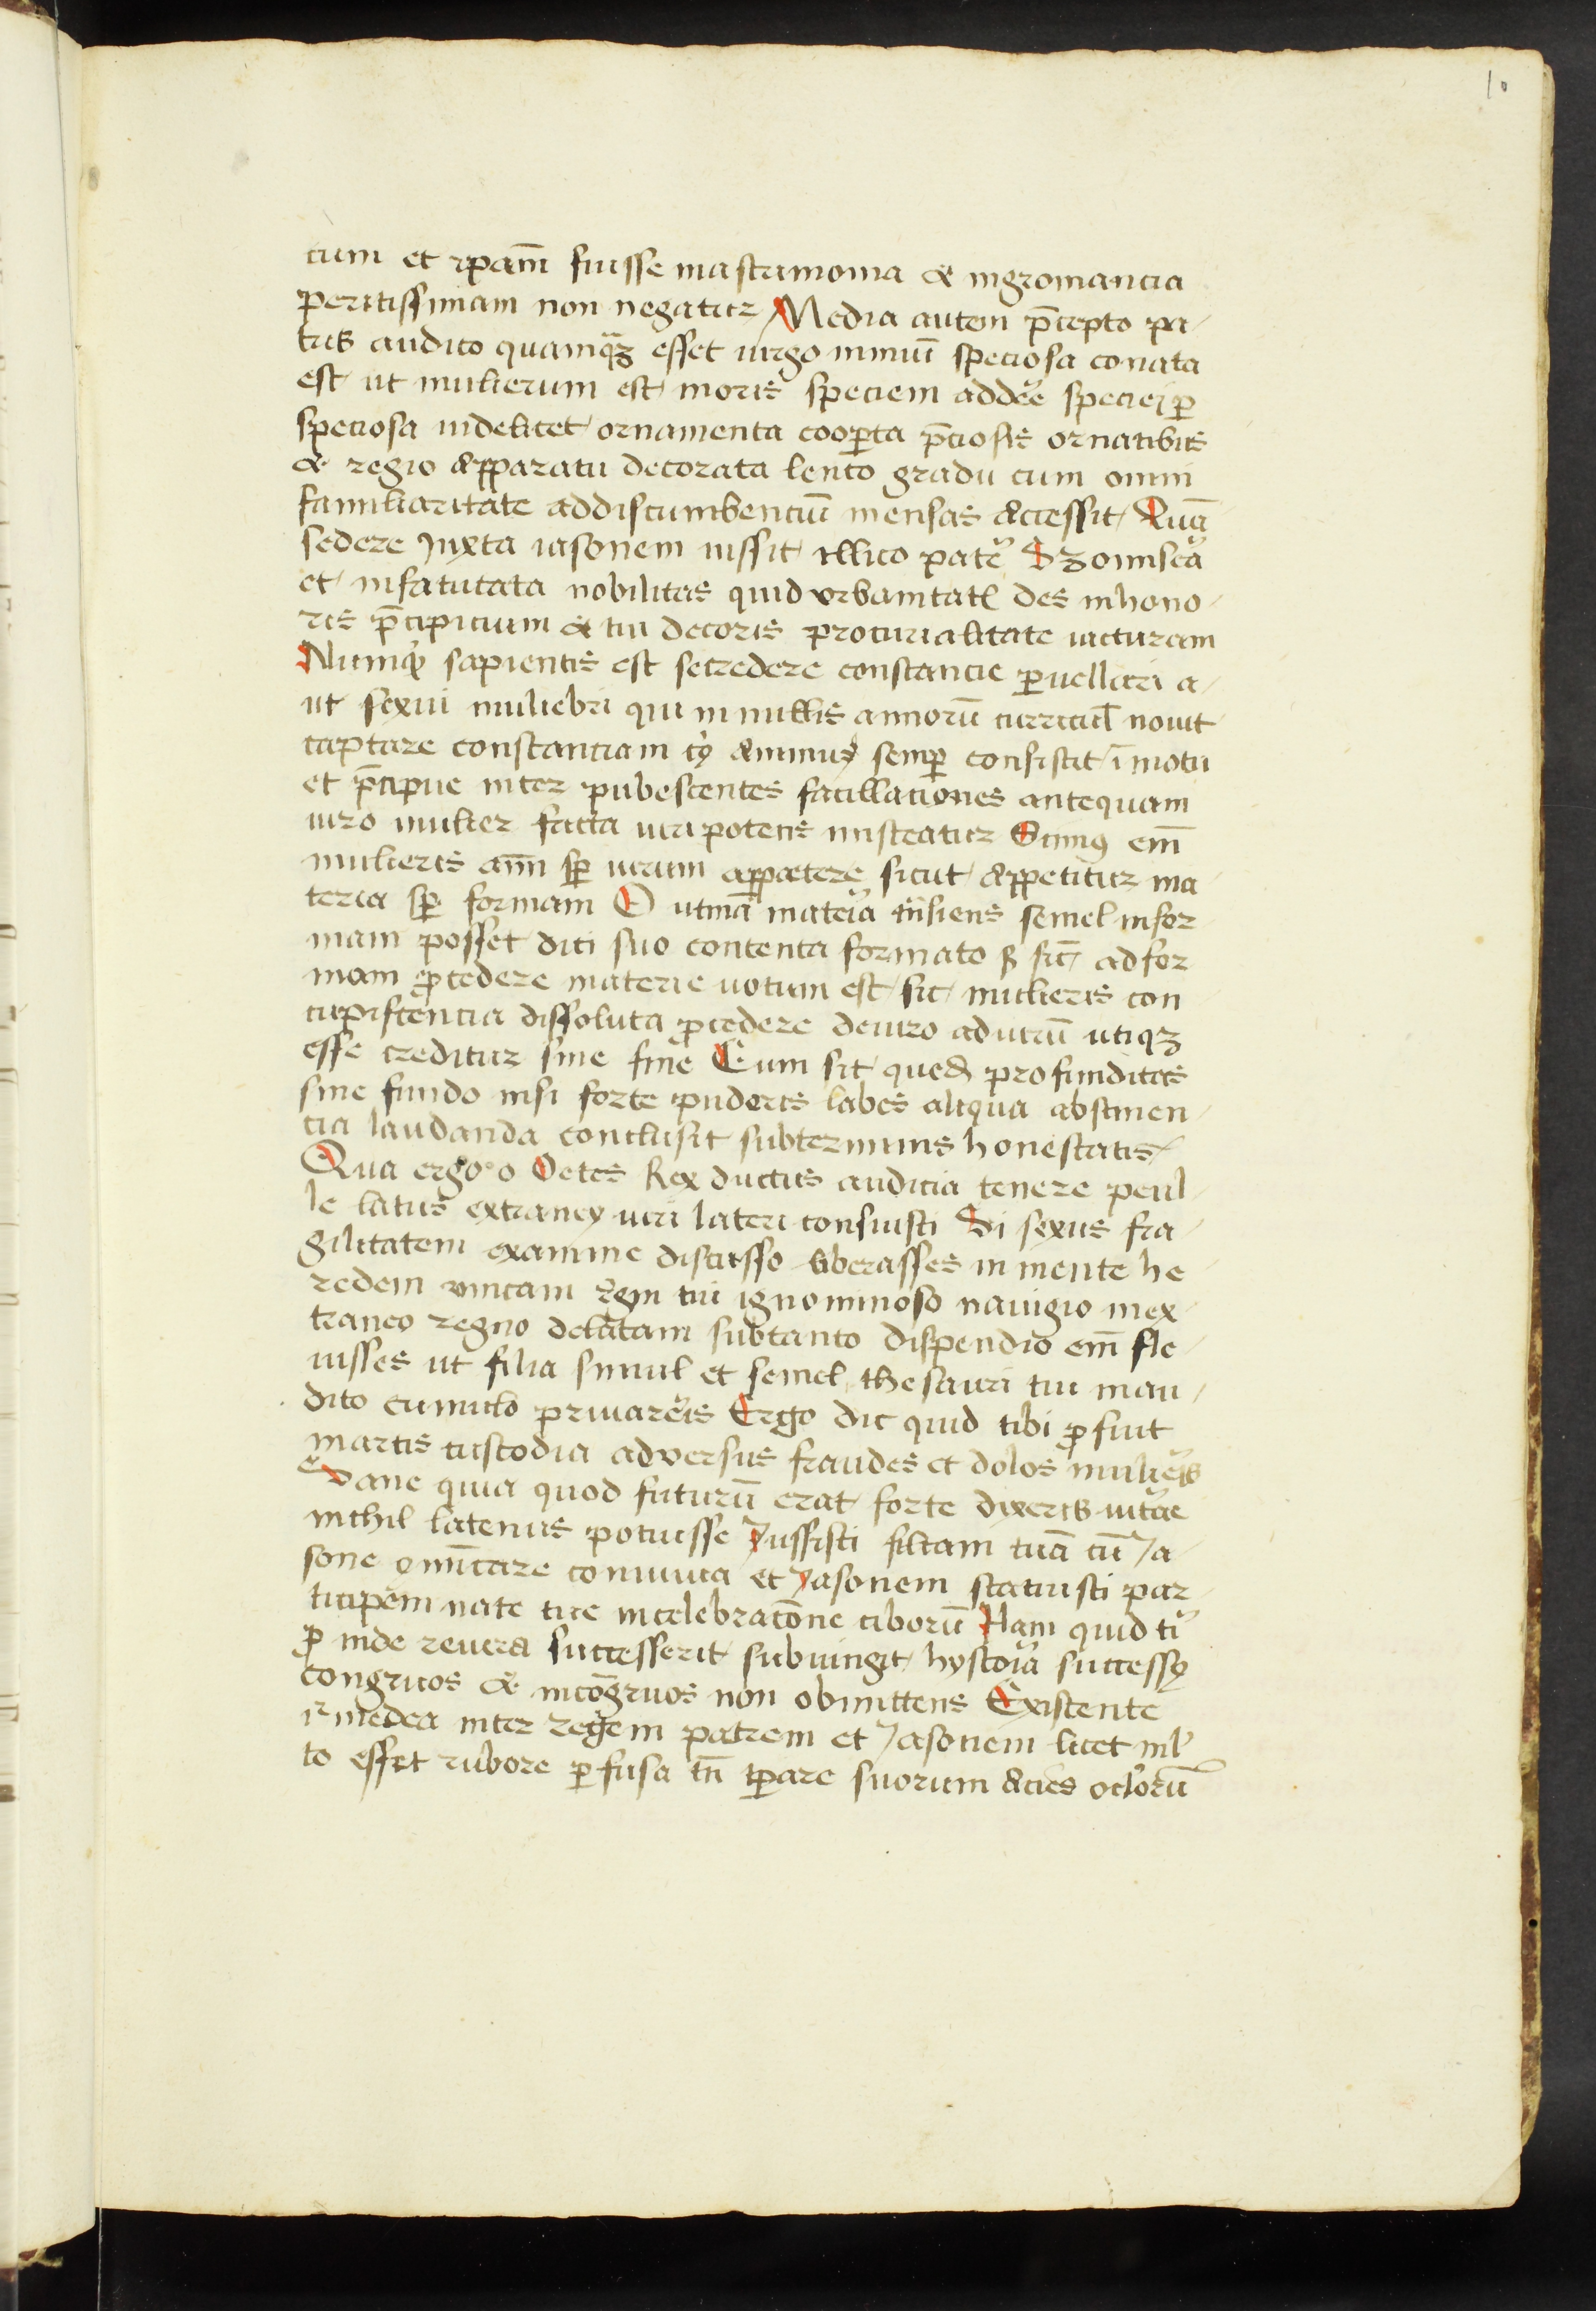 10
cum et ip̄am̄ fuisse in astrimonia & nigromancia
peritissimam non negatur Medea autem p̄cepto pa-
tris audito quamq̄ȝ esset uirgo nimiū speciosa conata
est ut mulierum est moris speciem addēe speciei p̱
speciosa uidelicet ornamenta coop̱ta p̄ciosis ornatibus
& regio apparatu decorata lento gradu cum omni
familiaritate addiscumbenciū mensas accessit Quā
sedere Juxta iasonem iussit illico pater Sȝ o miseā
et infatutata nobilitas quid vrbanitatꝭ des in hono-
ris p̄cipicium & tui decoris pro curialitate iacturam
Numq̇ sapientis est se credere constancie puellari a-
ut sexui muliebri qui in nullis annorū curricul̄ nouit
captare constanciam cꝰ animus semp̱ consistit ī motu
et p̄cipue inter pubescentes facillationes antequam
uiro mulier facta uiripotens misceatur Scimꝰ em̄
mulieris am̄ sp̱ uirum appetere sicut appetitur ma
teria sp̱ formam O utinā materia tn̄siens semel in for
mam posset dici suo contenta formato ß sic̄ ad for
mam p̄cedere materie notum est sic mulieris con
cupiscencia dissoluta p̄cedere de uiro ad uirū utiqȝ
esse creditur sine fine Cum sit qued̄ profunditas
sine fundo nisi forte pudoris labes aliqua abstinen-
cia laudanda conclusit sub terminis honestatis
Qua ergo o Oetes Rex ductus audicia tenere puel-
le latus extraney uiri lateri consuisti Si sexus fra-
gilitatem examine discusso liberasses in mente he-
redem vnicam reḡm tui ignominoso nauigio in ex-
traneo regno delatam sub tanto dispendio em̄ fle-
uisses ut filia simul et semel thesauri tui inau-
dito cumulo priuareris Ergo dic quid tibi p̄fuit
martis custodia adversus fraudes et dolos mulieris
Sane quia quod futurū erat forte dixeris uitāe
nichil latenus potuisse Jussisti filiam tuā cū Ja-
sone ꝯmūicare conuiuia et Jasonem statuisti par-
ticipem nate tue in celebratōne ciborū Nam quid tꝰ
p̄ inde reuera successerit subiungit hystoria successꝰ
congruos & incōgruos non obmittens Existente
iᵍ medea inter regem patrem et Jasonem licet ml̄
to esset rubore p̱fusa tn̄ tp̱are suorum acies oclorū